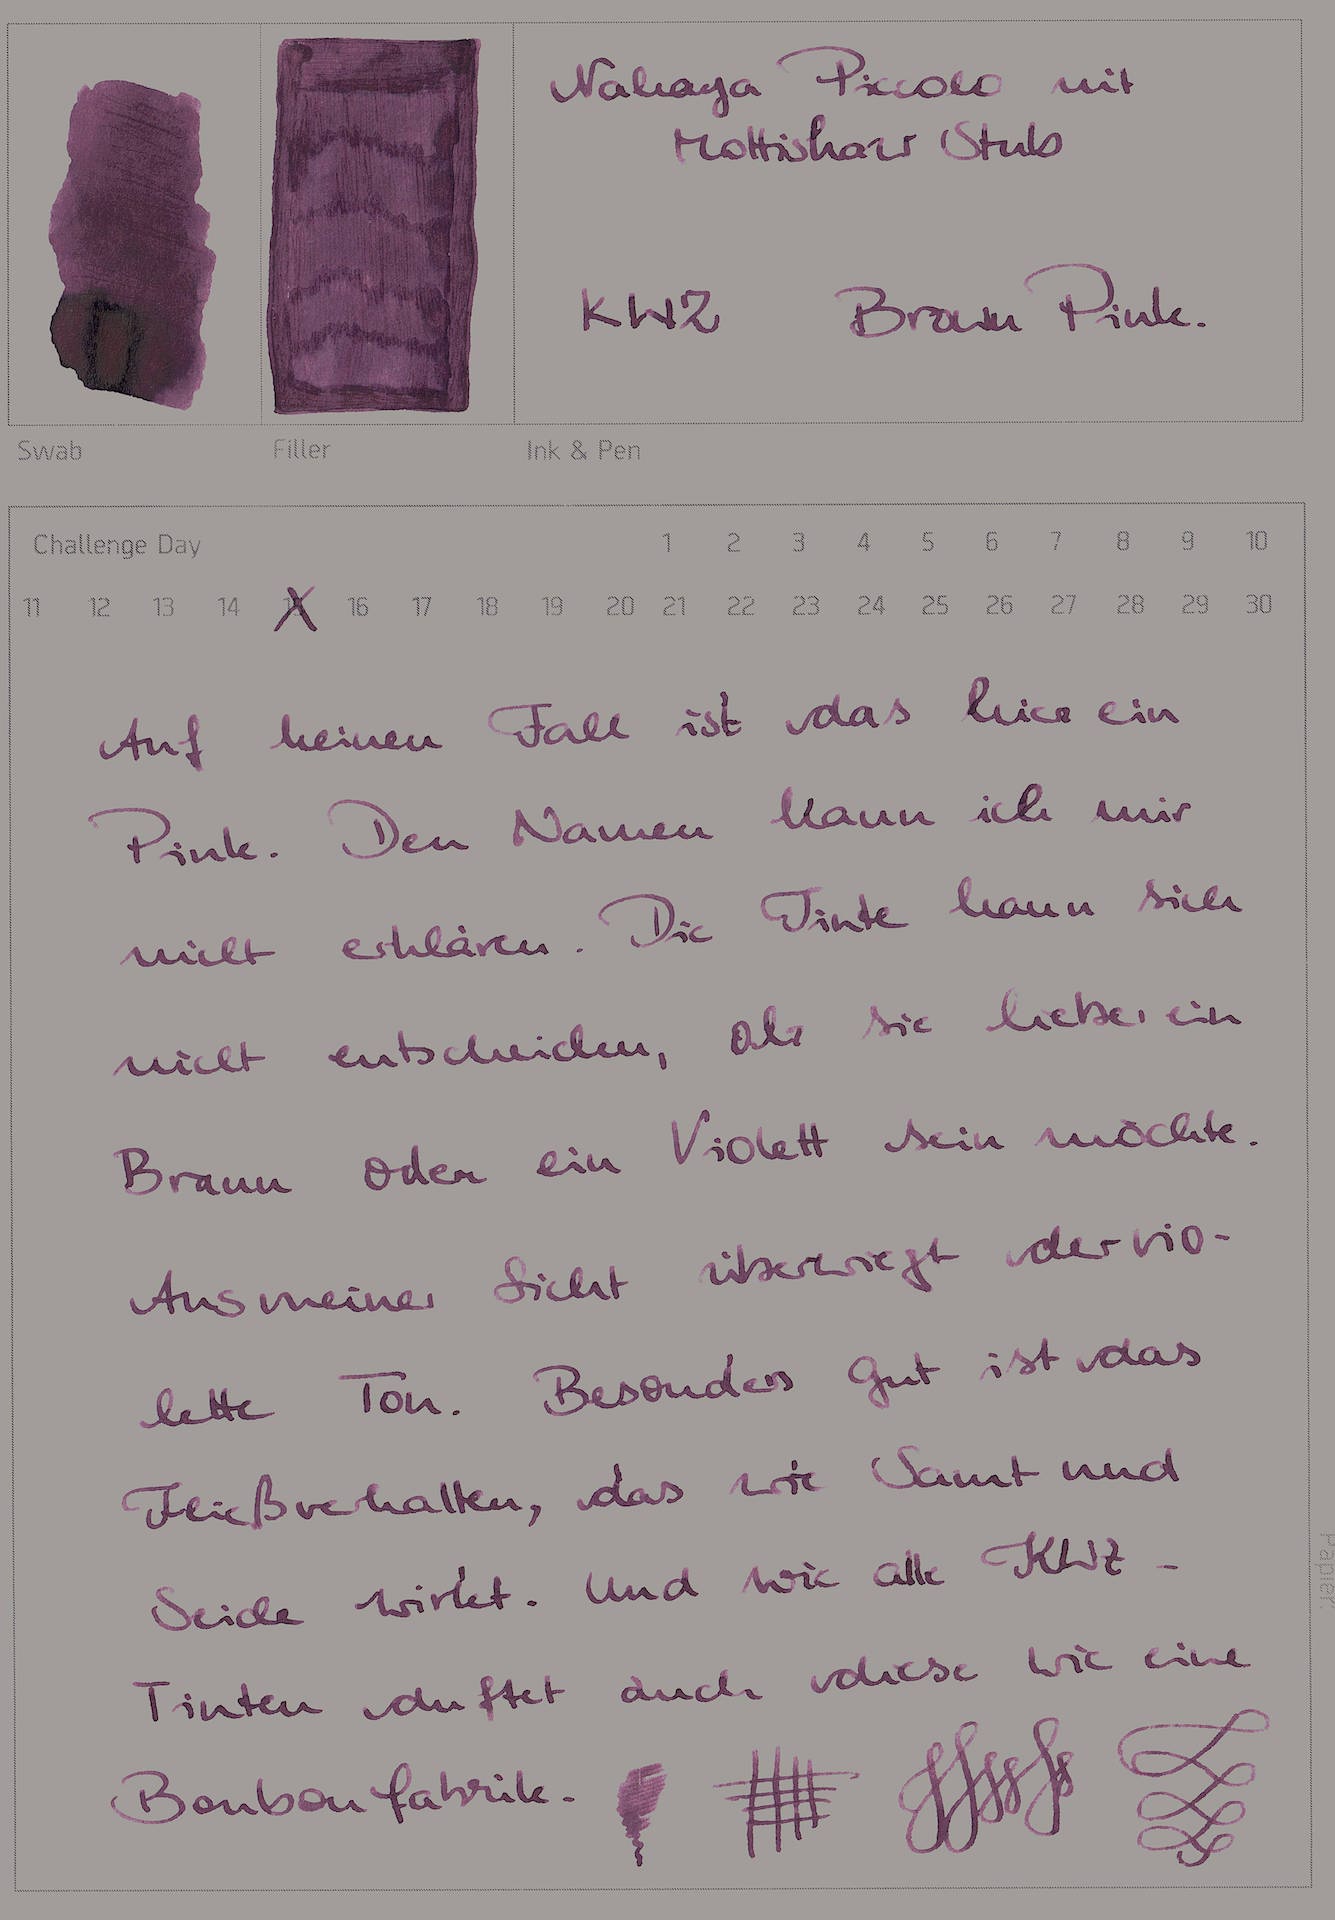 Nakaya Piccolo mit
Mottishaw Stub
KWZ Braun Pink.
Swab Filler Ink & Pen
Challenge Day 1 2 3 4 5 6 7 8 9 10
11 12 13 14 15 16 17 18 19 20 21 22 23 24 25 26 27 28 29 30
Auf keinen Fall ist das hier ein
Pink. Den Namen kann ich mir
nicht erklären. Die Tinte kann sich
nicht entscheiden, ob sie lieber ein
Braun oder ein Violett sein möchte.
Aus meiner Sicht überwiegt der vio-
lette Ton. Besonders gut ist das
Fließverhalten, das wie Samt und
Seide wirkt. Und wie alle KWZ -
Tinten duftet auch diese wie eine
Bonbonfabrik.
Papier: